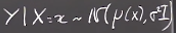 Y | X = x ~ N(μ(x), σ²I)